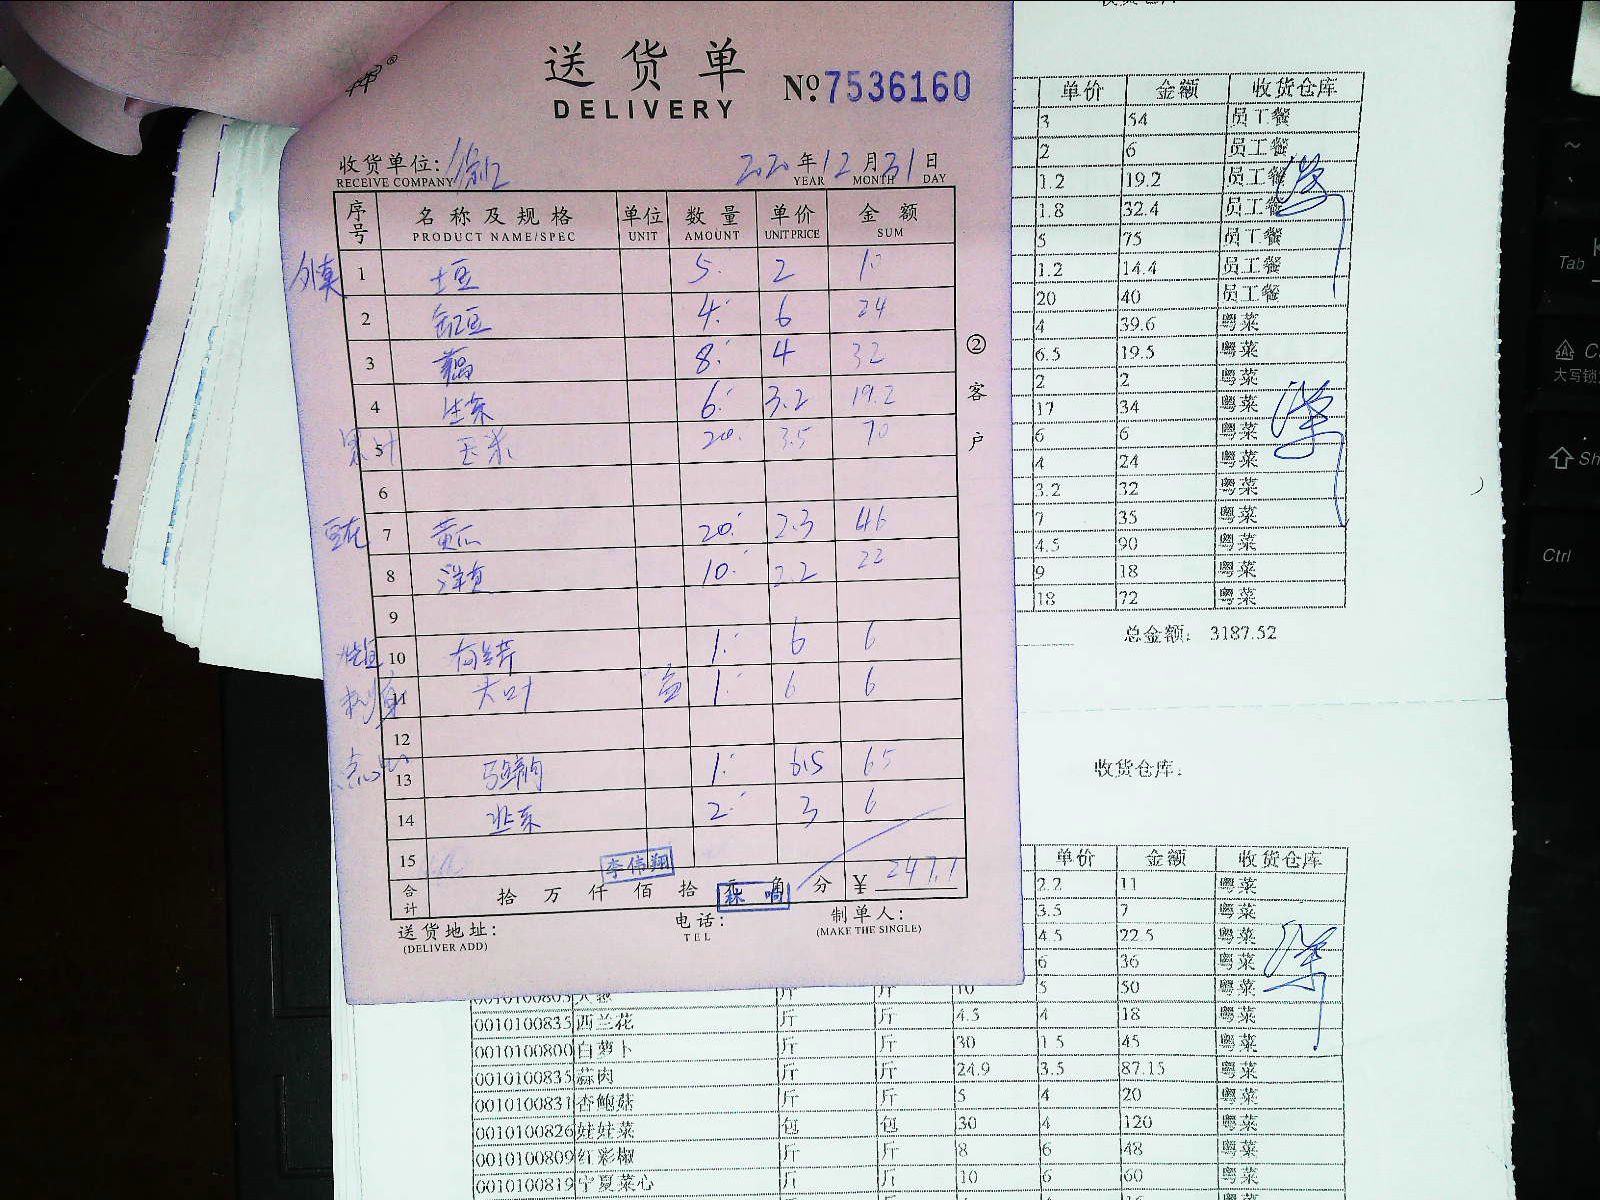 送货单
DELIVERY
No. 7536160
收货单位:
RECEIVE COMPANY
2020年12月31日
YEAR MONTH DAY
序号 名称及规格 单位 数量 单价 金额
PRODUCT NAME/SPEC UNIT AMOUNT UNIT PRICE SUM
1 土豆 5 2
2 豇豆 4 6 24
3 8 4 32
4 生菜 6 3.2 19.2
5 玉米 20 3.5 70
6
7 黄瓜 20 2.3 46
8 10 2.2 22
9
10 1 6 6
11 大叶 1 6 6
12
点心 13 1 6.5 6.5
14 韭菜 2 3 6
15
李伟翔
合计 拾 万 仟 佰 拾 元 角 分 ¥ 247.1
送货地址: 电话: 制单人:
(DELIVER ADD) TEL (MAKE THE SINGLE)
②客户
单价 金额 收货仓库
3 54 员工餐
2 6 员工餐
1.2 19.2 员工餐
1.8 32.4 员工餐
5 75 员工餐
1.2 14.4 员工餐
20 40 员工餐
4 39.6 粤菜
6.5 19.5 粤菜
2 2 粤菜
17 34 粤菜
6 6 粤菜
4 24 粤菜
3.2 32 粤菜
7 35 粤菜
4.5 90 粤菜
9 18 粤菜
18 72 粤菜
总金额: 3187.52
收货仓库:
单价 金额 收货仓库
2.2 11 粤菜
3.5 7 粤菜
4.5 22.5 粤菜
6 36 粤菜
斤 斤 10 5 50 粤菜
0010100835 西兰花 斤 斤 4.5 4 18 粤菜
0010100800 白萝卜 斤 斤 30 1.5 45 粤菜
0010100835 蒜肉 斤 斤 24.9 3.5 87.15 粤菜
0010100831 杏鲍菇 斤 斤 5 4 20 粤菜
0010100826 娃娃菜 包 包 30 4 120 粤菜
0010100809 红彩椒 斤 斤 8 6 48 粤菜
0010100819 宁夏菜心 斤 斤 10 6 60 粤菜
Tab
大写锁
Ctrl